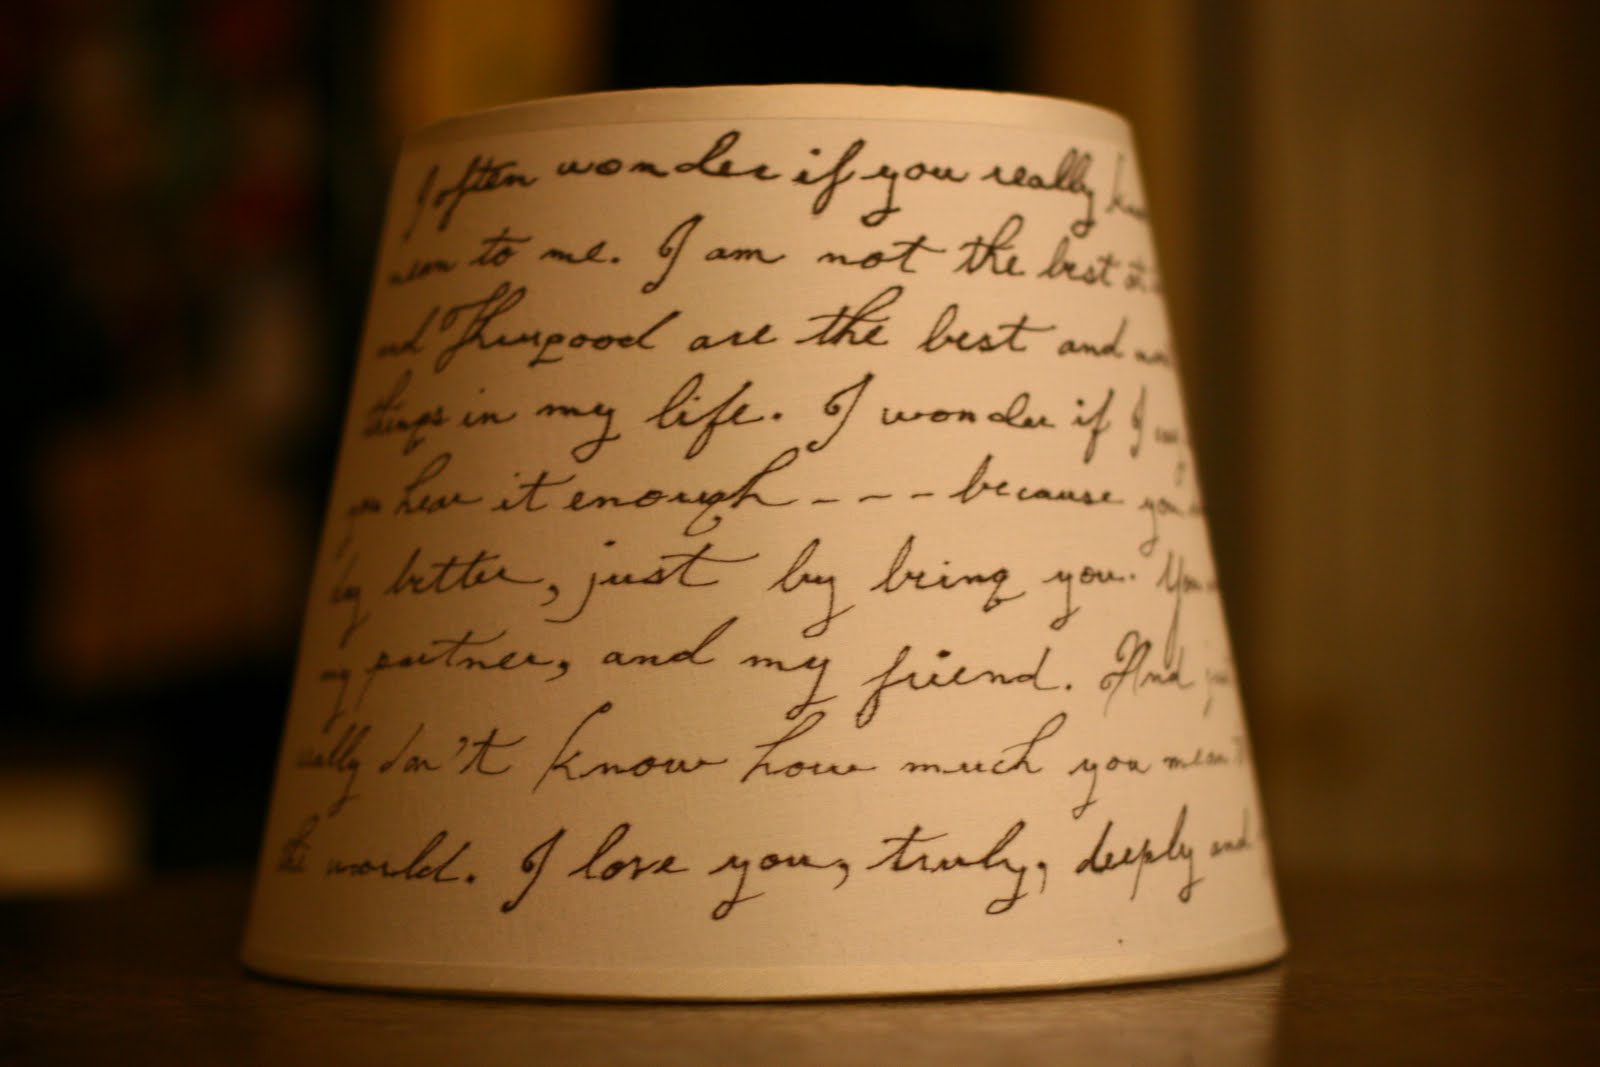 I often wonder if you really
mean to me. I am not the best at
and Thurgood are the best and
things in my life. I wonder if I
you hear it enough - - - because you
by better, just by being you. You
my partner, and my friend. And
really don't know how much you mean
the world. I love you, truly, deeply and